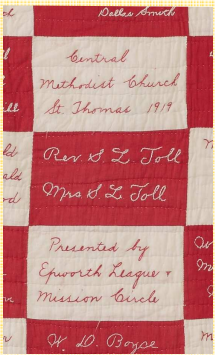 Dallas Smith
Central
Methodist Church
St. Thomas 1919
Rev S L Toll
Mrs S L Toll
Presented by
Epworth League +
Mission Circle
W. D. Boyse